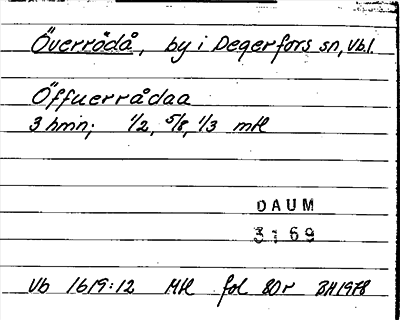 Överrödå, by i Degerfors sn, Vb l.
Öffuerrådaa
3 hmin; 1/2, 5/8, 1/3 mtl
DAUM
3169
Vb 1619:12 Mtl fol 80r BH1978